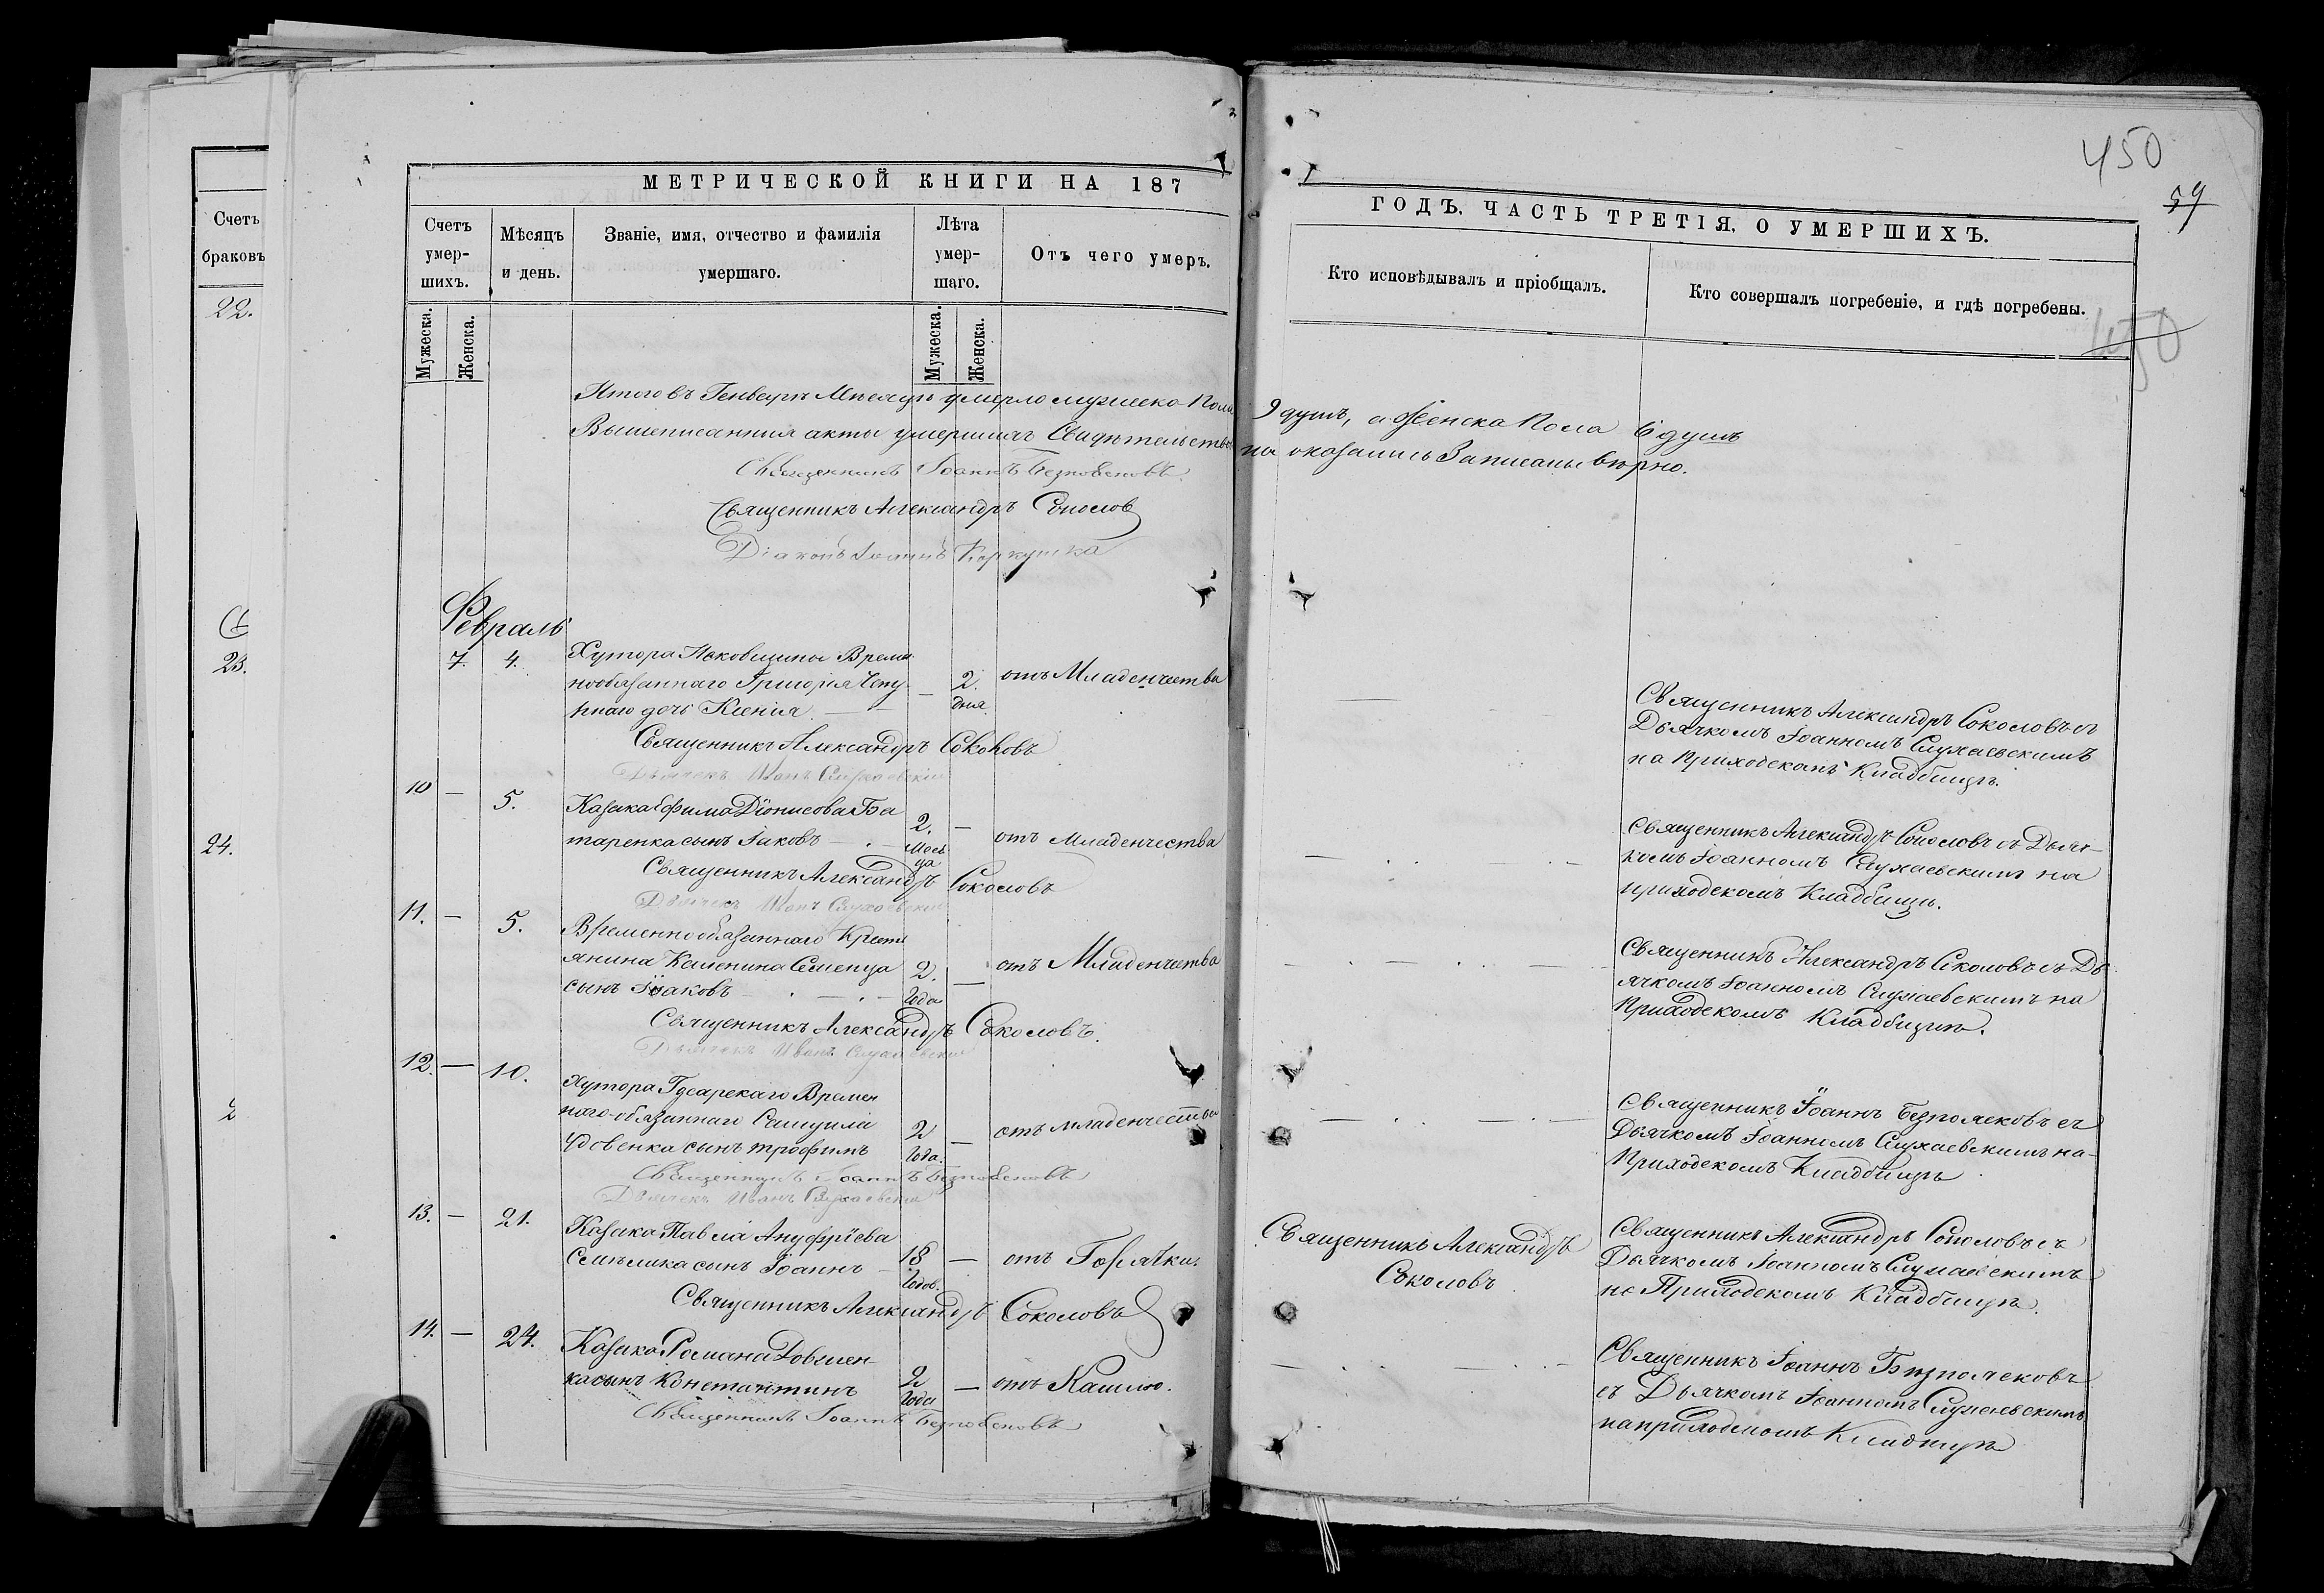 450
59
МЕТРИЧЕСКОЙ КНИГИ НА 187
ГОДЪ, ЧАСТЬ ТРЕТІЯ, О УМЕРШИХЪ.
Счетъ браковъ
22.
23.
24.
Счетъ умер-шихъ.
Мужеска.
Женска.
Мѣсяцъ и день.
Званіе, имя, отчество и фамилія умершаго.
Лѣта умер-шаго.
Мужеска.
Женска.
Отъ чего умеръ.
Кто исповѣдывалъ и пріобщалъ.
Кто совершалъ погребеніе, и гдѣ погребены.
450
Итого въ Генварѣ Мѣсяцѣ умерло мужеска Пола 9 душъ, а Женска Пола 6 душъ
Вышеписанныя акты умершихъ Свидѣтельство на оказались Записаны вѣрно.
Священникъ Іоаннъ
Священникъ Александръ Соколов
Діаконъ Іоаннъ
Февраль
7. 4. Хутора Яковщины Време
ннообязаннаго Григорія Чепу
рнаго дочь Ксенія — 2. дня. отъ Младенчества
Священникъ Александръ Соколовъ съ
Дьячкомъ Іоанномъ
на Приходскомъ Кладбищѣ.
Священникъ Александръ Соколовъ
Дьячекъ Иванъ
10 — 5. Казака Ефима Діонисова Ба
таренка сынъ Іаковъ 2. Месяца — отъ Младенчества
Священникъ Александръ Соколовъ съ Дьяч-
комъ Іоанномъ на
приходскомъ Кладбищѣ.
Священникъ Александръ Соколовъ
Дьячекъ Иванъ
11. — 5. Временнообязаннаго Крестъ
янина Калиника Семенца 2. — отъ Младенчества
сынъ Ісаковъ Года
Священникъ Александръ Соколовъ съ Дь
ячкомъ Іоанномъ на
Приходскомъ Кладбищѣ.
Священникъ Александръ Соколовъ.
Дьячекъ Иванъ
12. — 10. Хутора Гусарскаго Времен
наго-обязаннаго Самуила
Удовенка сынъ Трофимъ 2 Года. — отъ младенчества
Священникъ Іоаннъ съ
Дьячкомъ Іоанномъ на
Приходскомъ Кладбищѣ
Священникъ Іоаннъ
Дьячекъ Иванъ
13. — 21. Казака Павла Ануфріева
сынъ Іоаннъ 18 Годов. — отъ Горячки.
Священникъ Александръ
Соколовъ
Священникъ Александръ Соколовъ съ
Дьячкомъ Іоанномъ
на Приходскомъ Кладбищѣ.
Священникъ Александръ Соколовъ
14. — 24. Казака Романа Довжен-
ка сынъ Константинъ 2 Года — отъ Кашлю.
Священникъ Іоаннъ
съ Дьячкомъ Іоанномъ
на приходскомъ
Священникъ Іоаннъ